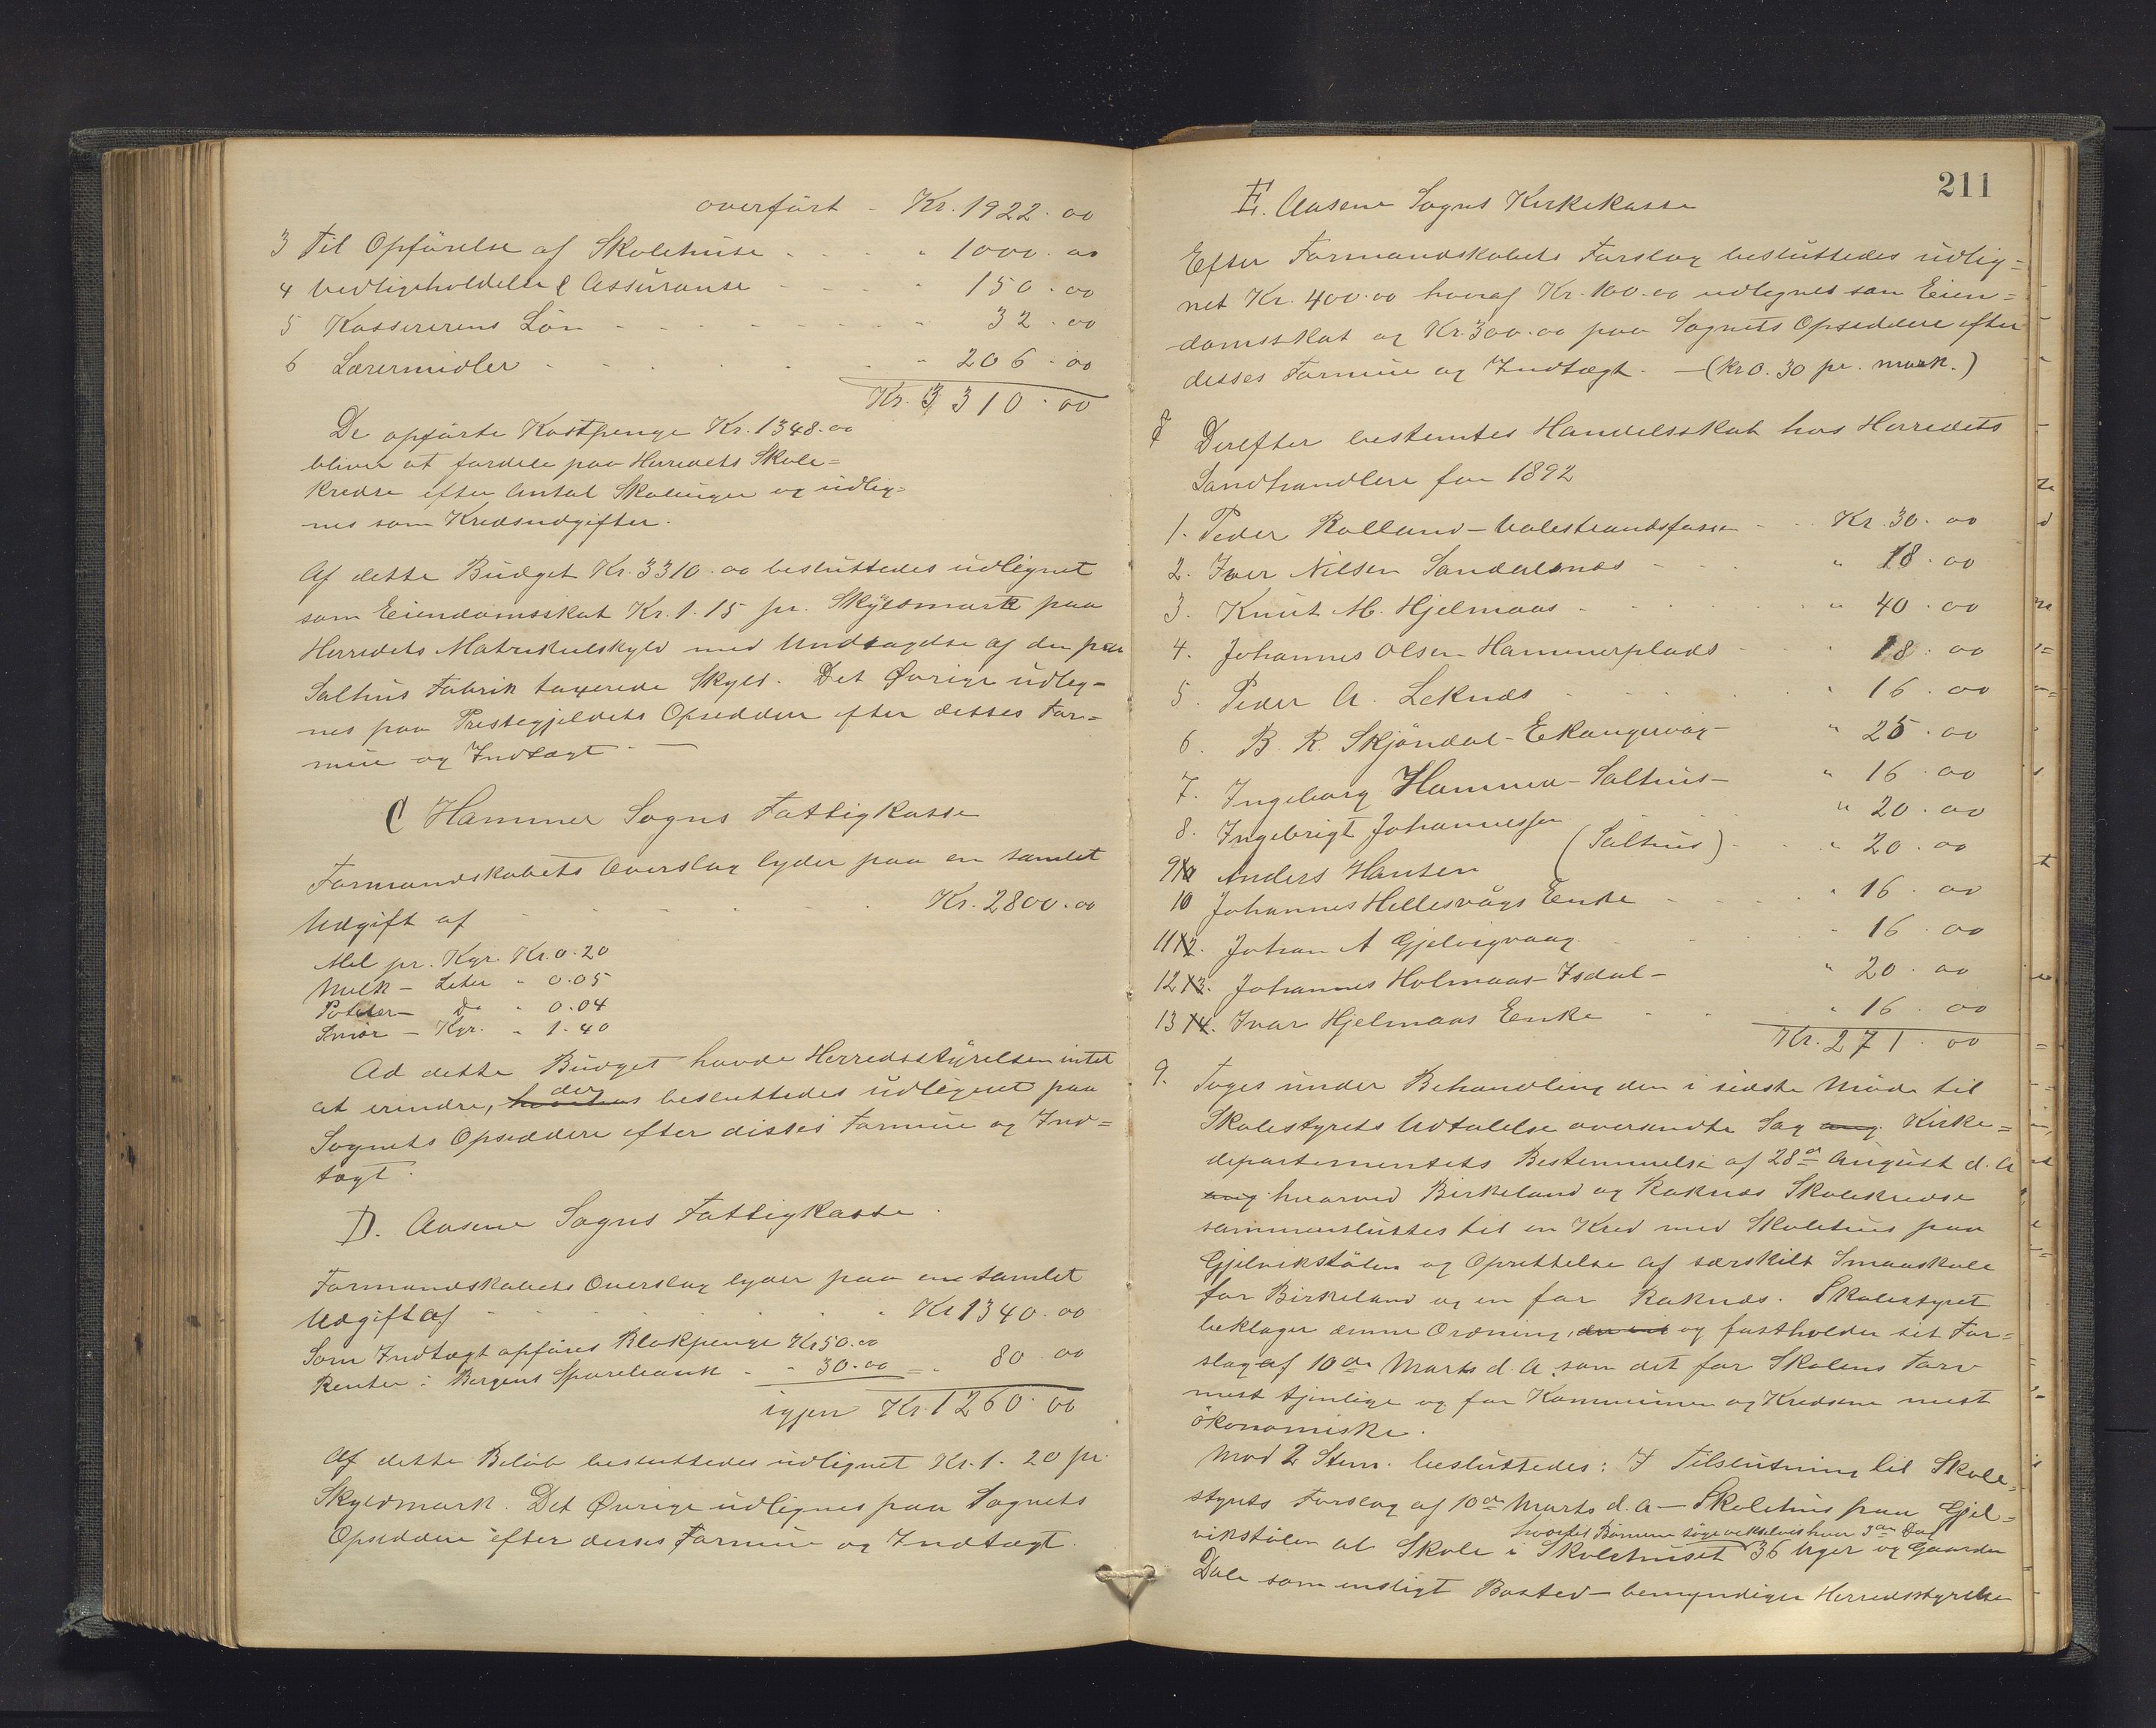 overført - Kr. 1922.00
3 Til Opförelse af Skolehuse - - - " 1000.00
4 Vedligeholdelse & Assuranse - - - " 150.00
5 Kassererens Lön - - - - - - - " 32.00
6 Lærermidler - - - - - " 206.00
Kr. 3310.00
De opförte Kostpenge Kr. 1348.00
bliver at fordele paa Herredets Skole=
kredse efter Antal Skoleuger og udlig=
nes som Kredsudgifter.
Af dette Budget Kr. 3310.00 besluttedes udlignet
som Eiendomsskat Kr. 1.15 pr. Skyldmark paa
Herredets Matrikulskyld med Undtagelse af den paa
Salhus Fabrik taxerede Skyld. Det Øvrige udlig-
nes paa Prestegjeldets Opsiddere efter disses For=
mue og Indtægt. —
C Hammer Sogns Fattigkasse
Formandskabets Overslag lyder paa en samlet
Udgift af - - - - - - Kr. 2800.00
Mel pr. Kgr. Kr. 0.20
Melk - Liter " 0.05
Poteter - Do " 0.04
Smör - Kgr. " 1.40
Ad dette Budget havde Herredsstyrelsen intet
at erindre, der besluttedes udlignet paa
Sognets Opsiddere efter disses Formue og Ind=
tægt.
D. Aasene Sogns Fattigkasse.
Formandskabets Overslag lyder paa en samlet
Udgift af - - - - - - " Kr 1340.00
Som Indtægt opføres Blokpenge Kr 50.00
Renter i Bergens Sparebank - " 30.00 = " 80.00
igjen Kr. 1260.00
Af dette Beløb besluttedes udlignet Kr. 1.20 pr.
Skyldmark. Det Øvrige udlignes paa Sognets
Opsiddere efter disses Formue og Indtægt.
211
E. Aasene Sogns Kirkekasse
Efter Formandskabets Forslag besluttedes udlig=
net Kr. 400.00 hvoraf Kr. 100.00 udlignes som Eien=
domsskat og Kr. 300.00 paa Sognets Opsiddere efter
disses Formue og Indtægt. — (kr 0.30 pr. mark.)
Derefter bestemtes Handelsskat hos Herredets
Landhandlere for 1892
1. Peder Rolland - Valestrandsfossen - - Kr. 30.00
2. Iver Nilsen Sandalsnæs - - - " 18.00
3. Knut M. Hjelmaas - - - - " 40.00
4. Johannes Olsen Hammerplads - - " 18.00
5. Peder A. Leknæs - - - - " 16.00
6. B. R. Skjöndal - Ekangervåg - " 25.00
7. Ingeborg Hammer - Salhus - " 16.00
8. Ingebrigt Johannessen " 20.00
9 Anders Hansen (Salhus) - - " 20.00
10 Johannes Hellesvågs Enke - - - " 16.00
11 12. Johan A Gjelvigvaag - - - " 16.00
12 13. Johannes Holmaas - Isdal - " 20.00
13 14. Ivar Hjelmaas Enke - - - " 16.00
Kr. 271.00
9. Toges under Behandling den i sidste Möde til
Skolestyrets Udtalelse oversendte Sag ang. Kirke=
departementets Bestemmelse af 28de August d. A
ang. hvorved Birkeland og Raknæs Skolekredse
sammensluttes til en Kred med Skolehus paa
Gjelvikstölen og Oprettelse af særskilt Smaaskole
for Birkeland og en for Raknæs. Skolestyret
beklager denne Ordning, og fastholder sit For=
slag af 10de Marts d. A. som det for Skolens Tarv
mest tjenlige og for Kommunen og Kredsene mest
ökonomiske.
Mod 2 Stem. besluttedes: I Tilslutning til Skole=
styrets Forslag af 10de Marts d. A - Skolehus paa Gjel=
hvortil Börnene søge vekselvis hver 3die Dag
vikstölen at Skole i Skolehuset 36 Uger og Gaarden
Dale som ensligt Bosted - bemyndiger Herredsstyrelse